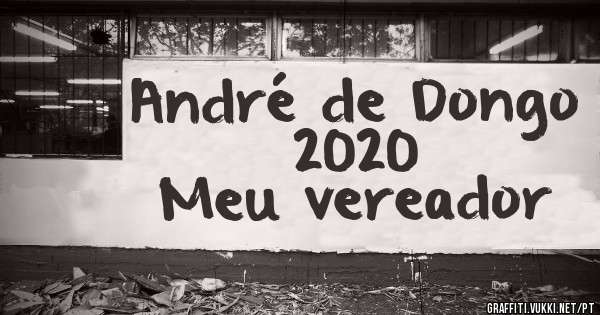 André de Dongo
2020
Meu vereador
GRAFFITI.VUKKI.NET/PT